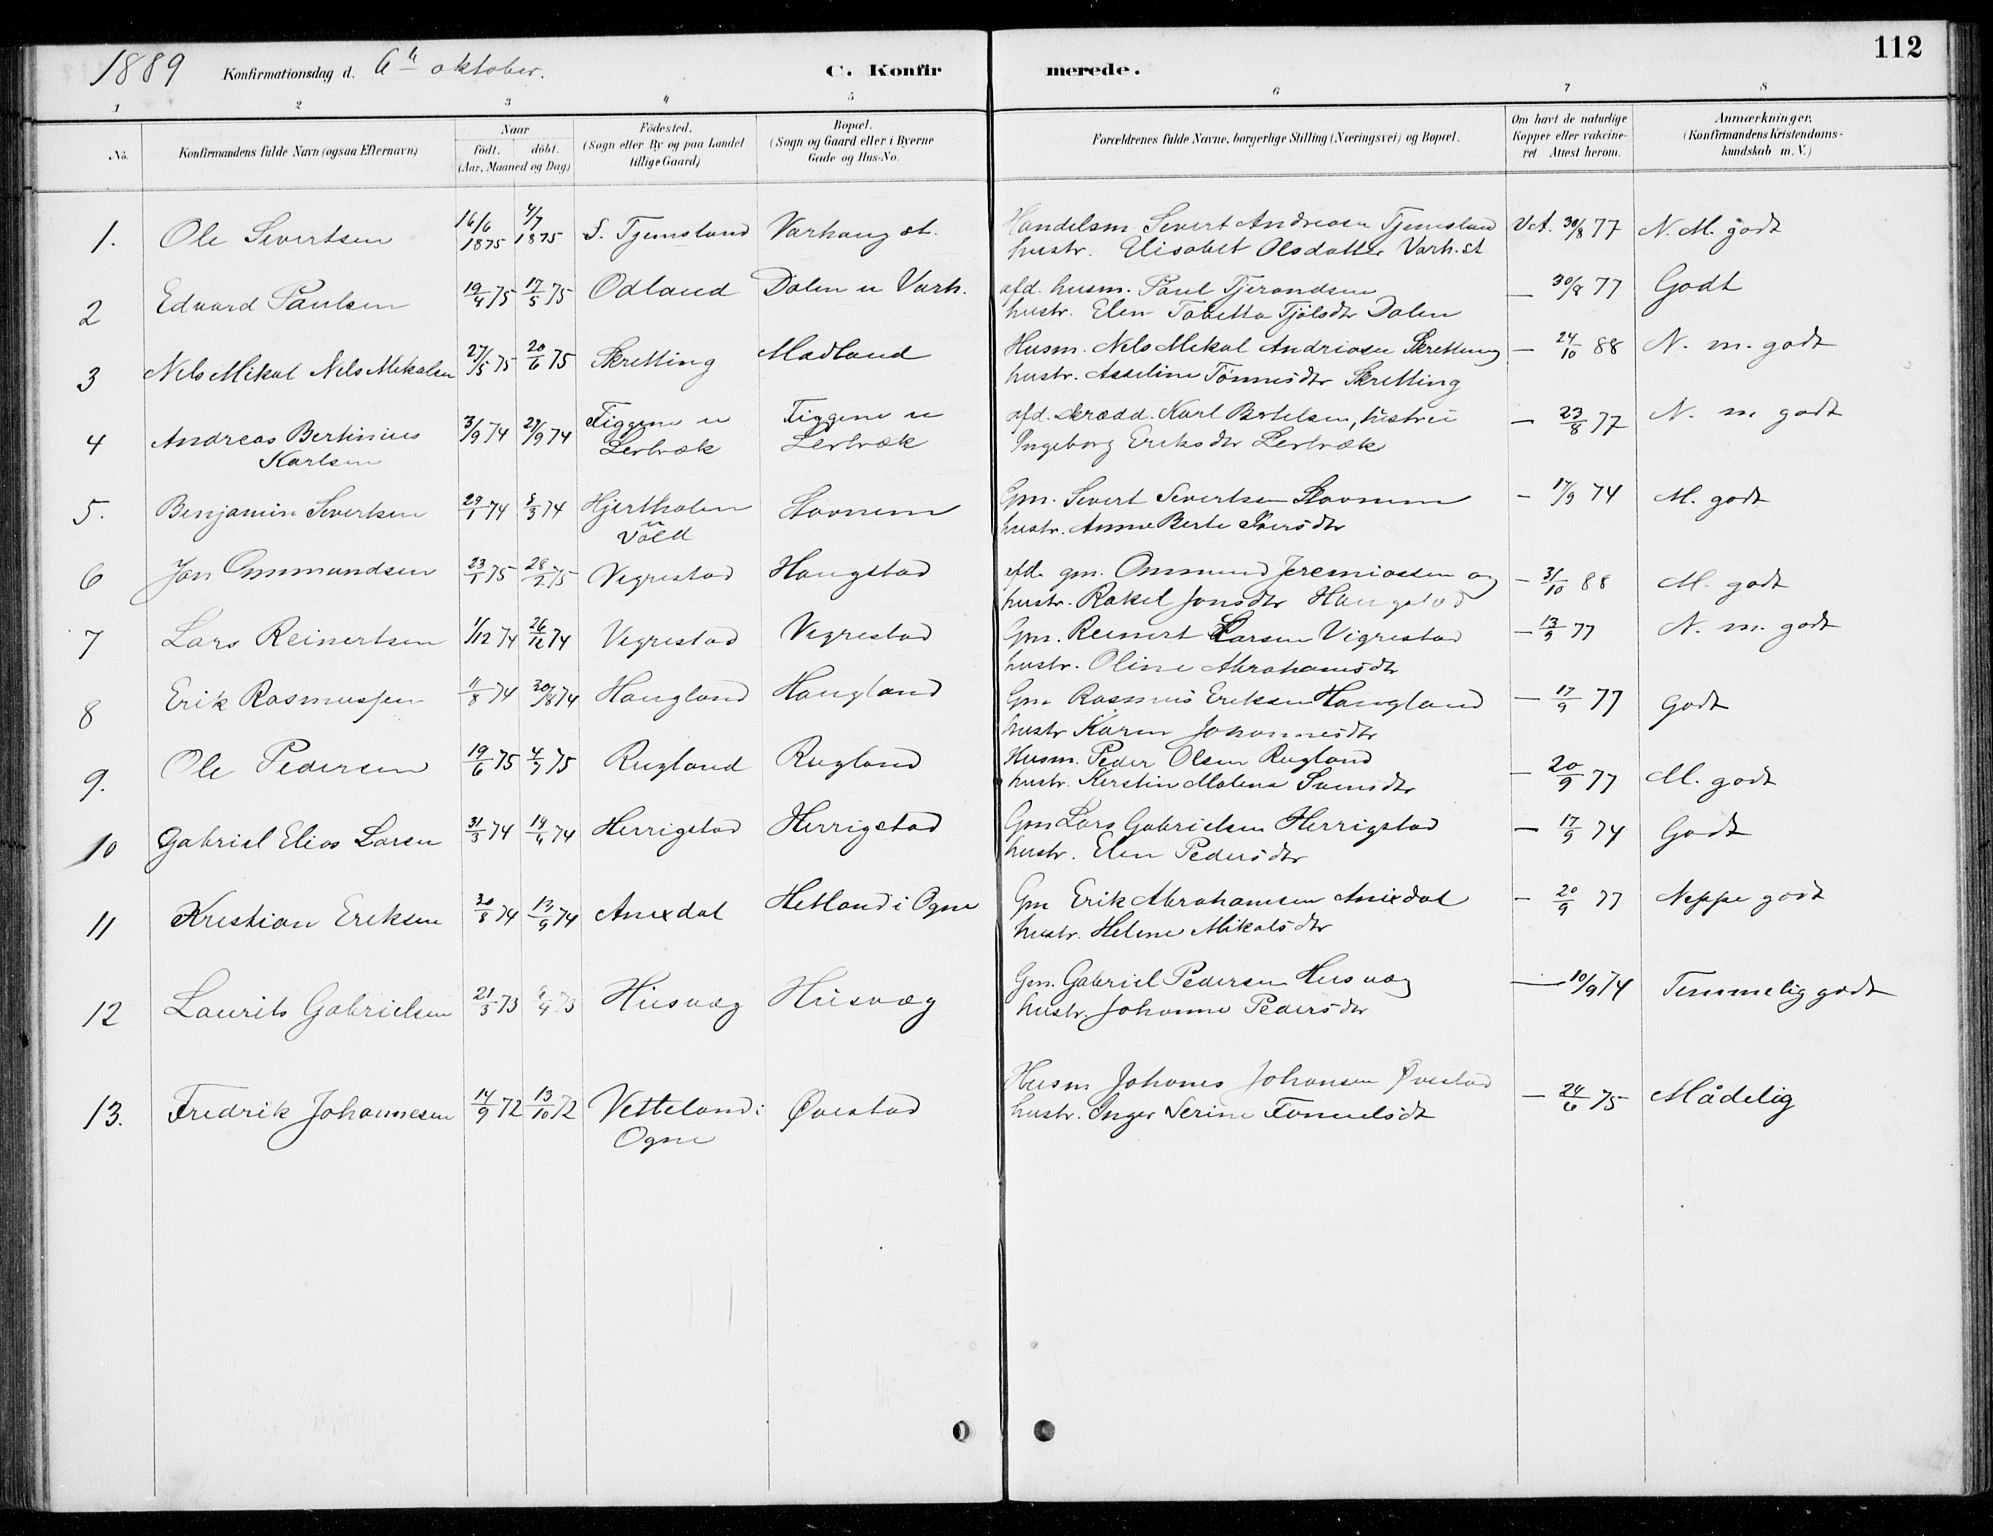 112
1889 Konfirmationsdag d. 6te oktober. C. Konfirmerede.
1 2 3 4 5 6 7 8
No. Konfirmandens fulde Navn (ogsaa Efternavn) Naar født. døbt. (Aar, Maaned og Dag) Fødested. (Sogn eller By og paa Landet tillige Gaard) Bopæl. (Sogn og Gaard eller i Byerne Gade og Hus-No. Forældrenes fulde Navne, borgerlige Stilling (Næringsvei) og Bopæl. Om havt de naturlige Kopper eller vakcineret. Attest herom. Anmærkninger. (Konfirmandens Kristendomskundskab m. V.)
1. Ole Sivertsen 16/6 1875 4/7 1875 S. Tjemsland Varhaug st. Handelsm Sivert Andreasen Tjemsland Vct. 30/8 77 N. M. godt
hustr. Elisabet Olsdatter Varh. st
2 Edvard Paulsen 19/4 75 17/5 75 Odland Dalen u Varh. afd. husm. Paul Tjerandsen — 30/8 77 Godt
hustr. Elen Tabetta Tjølsdtr Dalen
3 Nils Mikal Nils Mikalsen 27/5 75 20/6 75 Skretting Madland Husm. Nils Mikal Andreasen Skretting — 24/10 88 N. m. godt
hustr. Asseline Tønnesdtr Skretting
4 Andreas Bertinius Karlsen 3/9 74 27/9 74 Tiggene u Lerbræk Tiggene u Lerbræk afd. skrædd. Karl Bertelsen, hustru — 23/8 77 N. m godt
Ingeborg Eriksdtr Lerbræk
5. Benjamin Sivertsen 29/1 74 8/3 74 Hjertholen u Vold Stavnem Gm. Sivert Sivertsen Stavnem — 17/9 74 M. godt
hustr. Anna Berte Iversdtr
6 Jon Ommundsen 23/1 75 28/2 75 Vigrestad Haugstad afd. gm. Ommund Jeremiassen og — 31/10 88 M. godt
hustr. Rakel Jonsdtr Haugstad
7 Lars Reinertsen 1/12 74 26/12 74 Vigrestad Vigrestad Gm. Reinert Larsen Vigrestad — 13/9 77 N. m. godt
hustr. Oline Abrahamsdtr
8 Erik Rasmussen 11/8 74 30/8 74 Haugland Haugland Gm Rasmus Eriksen Haugland — 17/9 77 Godt
hustr Karen Johannesdtr
9. Ole Pedersen 19/6 75 4/7 75 Rugland Rugland Husm. Peder Olsen Rugland — 20/9 77 M. godt
hustr. Kerstin Malena Svensdtr
10 Gabriel Elias Larsen 31/3 74 19/4 74 Herrigstad Herrigstad Gm Lars Gabrielsen Herrigstad — 17/9 74 Godt
hustr. Elen Pedersdtr
11 Kristian Eriksen 30/8 74 13/9 74 Anixdal Hetland i Ogne Gm Erik Abrahamsen Anixdal — 20/9 77 Neppe godt
hustr. Helene Mikalsdtr
12 Laurits Gabrielsen 21/3 73 6/4 73 Husvæg Husvæg Gm. Gabriel Pedersen Husvæg — 10/9 74 Temmelig godt
hustr. Johanne Pedersdtr
13. Fredrik Johannesen 14/9 72 13/10 72 Vetteland i Ogne Øvestad Husm Johanes Johansen Øvestad — 24/6 75 Mådelig
hustr. Inger Serine